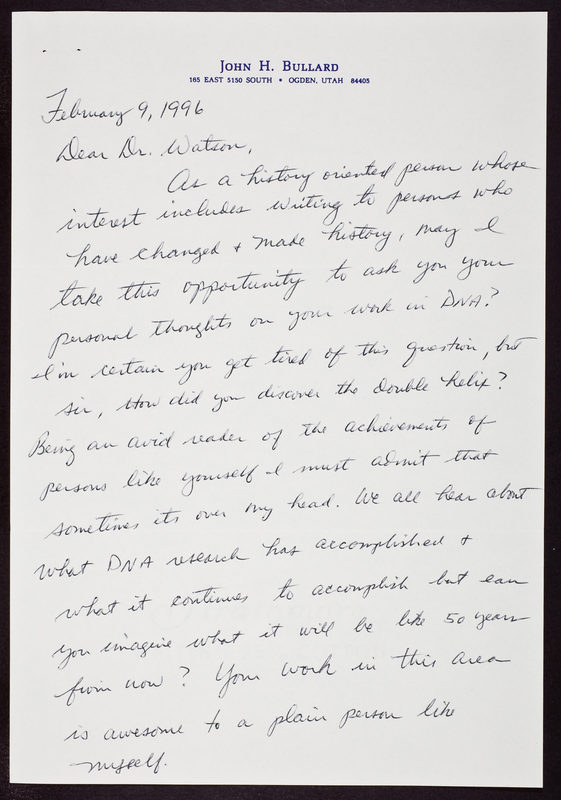 JOHN H. BULLARD
165 EAST 5150 SOUTH • OGDEN, UTAH 84405
February 9, 1996
Dear Dr. Watson,
As a history oriented person whose
interest includes writing to persons who
have changed + made history, may I
take this opportunity to ask you your
personal thoughts on your work in DNA?
I'm certain you get tired of this question, but
sir, How did you discover the double helix?
Being an avid reader of the achievements of
persons like yourself I must admit that
sometimes its over my head. We all hear about
what DNA research has accomplished +
what it continues to accomplish but can
you imagine what it will be like 50 years
from now? Your work in this area
is awesome to a plain person like
myself.